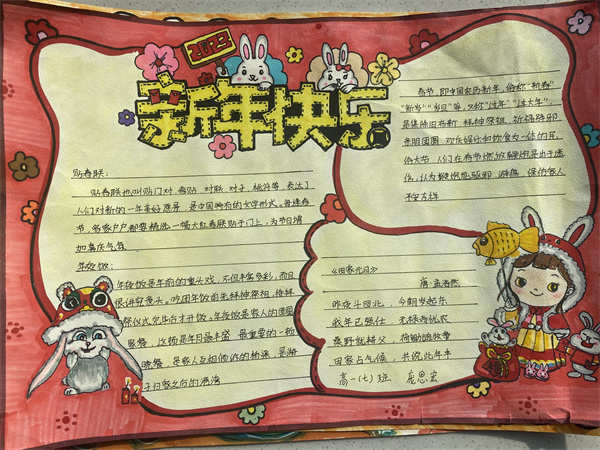 2023
新年快乐
贴春联：
贴春联也叫贴门对、春贴、对联、对子、桃符等，表达了
人们对新的一年美好愿景，是中国特有的文学形式。每逢春
节，家家户户都要精选一幅大红春联贴于门上，为节日增
加喜庆气氛
年夜饭：
年夜饭是年前的重头戏，不但丰富多彩，而且
很讲究意头。吃团年饭前先拜神祭祖，待拜
祭仪式完毕后才开饭。年夜饭是家人的团圆
聚餐，这顿是年尾最丰盛、最重要的一顿
晚餐，是家人互相倾诉的桥梁，是海
子归家之后的港湾
春节，即中国农历新年，俗称“新春”
“新岁”“岁旦”等，又称“过年”“过大年”，
是集除旧布新、拜神祭祖、祈福辟邪、
亲朋团圆、欢庆娱乐和饮食为一体的民
俗大节。人们在春节燃放鞭炮是由于迷
信，认为鞭炮能驱邪、避瘟、保佑家人
平安吉祥
《田家元日》
唐 孟浩然
昨夜斗回北，今朝岁起东
我年已强仕，无禄尚忧农
桑野就耕父，荷锄随牧童
田家占气候，共说此年丰
高一(七)班 庞思宏